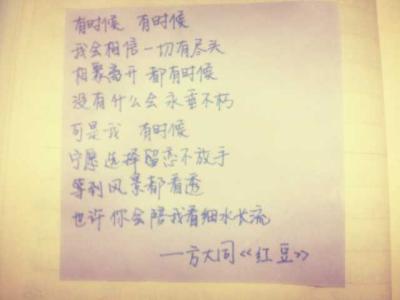 有时候 有时候
我会相信一切有尽头
相聚离开 都有时候
没有什么会永垂不朽
可是我 有时候
宁愿选择留恋不放手
等到风景都看透
也许你会陪我看细水长流
——方大同《红豆》